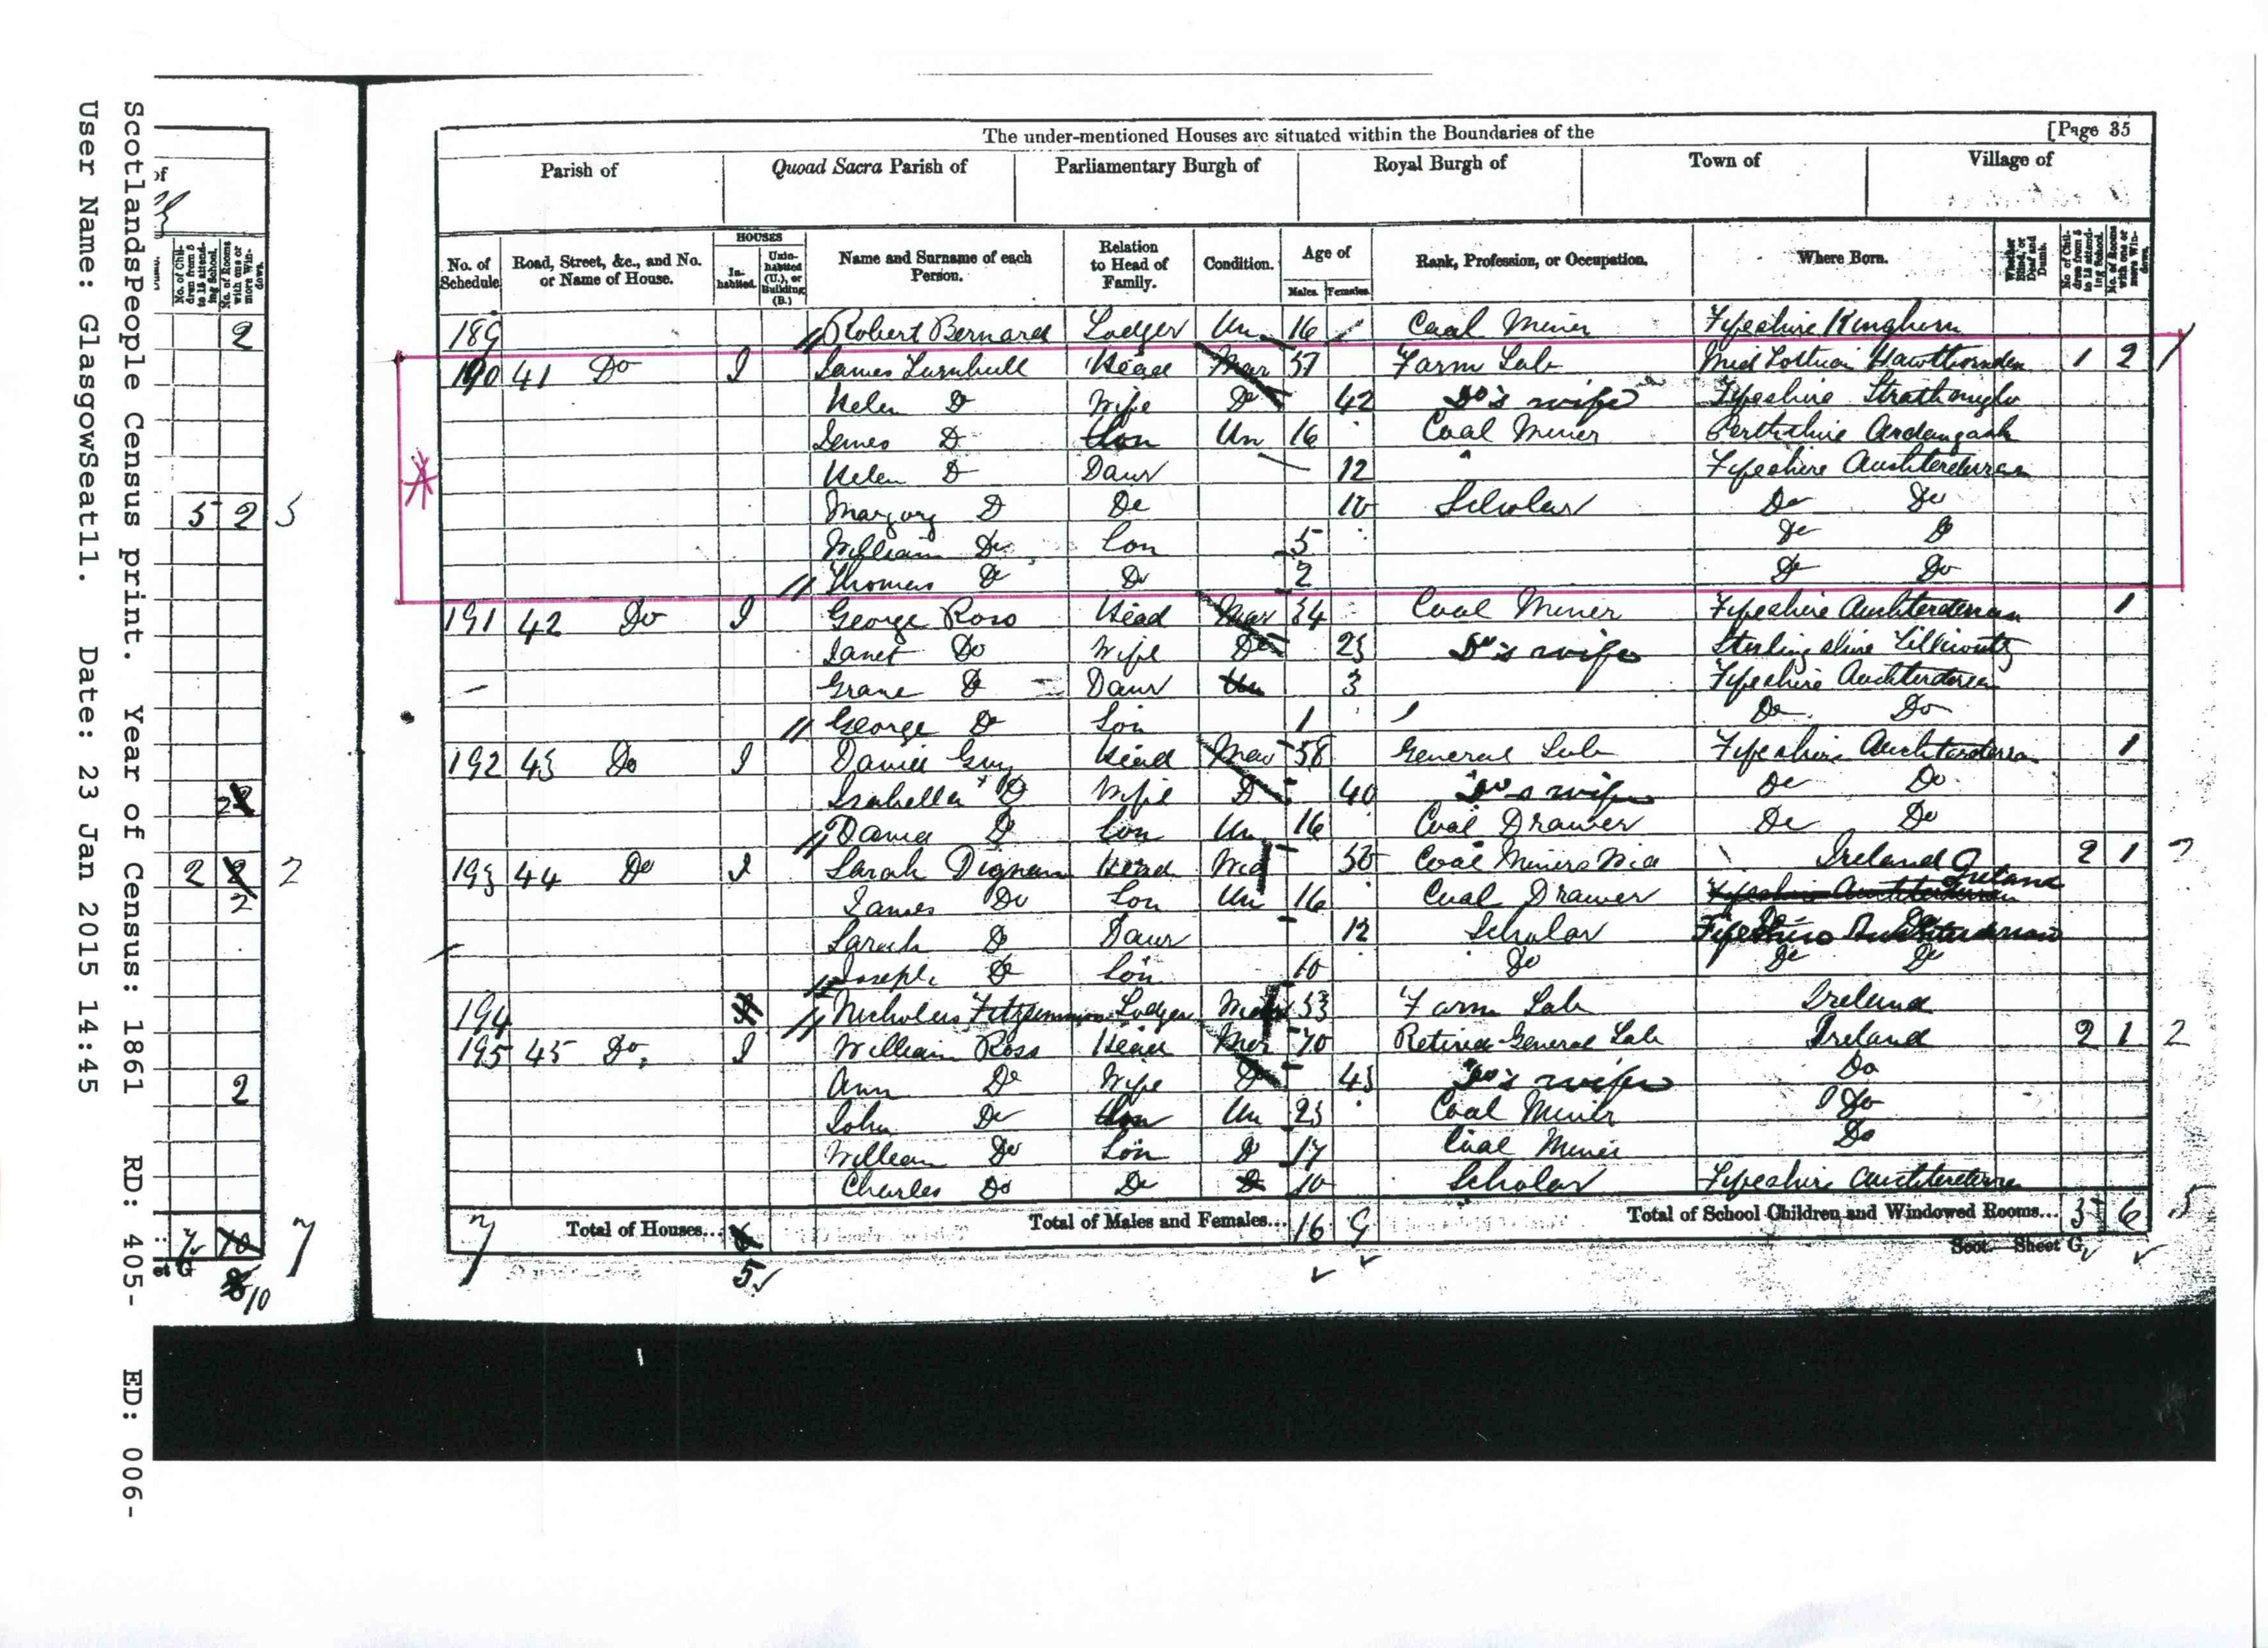 ScotlandsPeople Census print. Year of Census: 1861 RD: 405- ED: 006-
User Name: GlasgowSeatll. Date: 23 Jan 2015 14:45
of
No. of Children from 5 to 15 attending School.
No. of Rooms with one or more Windows.
2
5 2 5
2
2 2 2
2
2
7 10 7
et G
8/10
The under-mentioned Houses are situated within the Boundaries of the [Page 35
Parish of Quoad Sacra Parish of Parliamentary Burgh of Royal Burgh of Town of Village of
No. of Schedule Road, Street, &c., and No. or Name of House. HOUSES Inhabited. Uninhabited (U.), or Building (B.) Name and Surname of each Person. Relation to Head of Family. Condition. Age of Males. Females. Rank, Profession, or Occupation. Where Born. Whether Blind, or Deaf and Dumb. No. of Children from 5 to 15 attending School. No. of Rooms with one or more Windows.
189 Robert Bernard Lodger Un 16 Coal Miner Fifeshire Kinghorn
190 41 Do I James Turnbull Head Mar 37 Farm Lab Mid Lothian Hawthornden 1 2 1
Helen Do Wife Do 42 Do's wife Fifeshire Strathmiglo
James Do Son Un 16 Coal Miner Perthshire
Helen Do Daur 12 Fifeshire Auchterderran
Margory D De 10 Scholar Do Do
William Do Son 5 Do D
Thomas D Do 2 Do Do
191 42 Do I George Ross Head Mar 34 Coal Miner Fifeshire Auchterderran 1
Janet Do Wife Do 23 Do's wife Sterlingshire
D Daur Un 3 Fifeshire Auchterderran
George D Son 1 Do Do
192 43 Do I David Guy Head Mar 58 General Lab Fifeshire Auchterderran 1
Isabella D Wife D 40 Do's wife Do Do
David D Son Un 16 Coal Drawer Do Do
193 44 Do I Sarah Dignam Head Wid 50 Coal Miners Wid Ireland 2 1 2
James Do Son Un 16 Coal Drawer Fifeshire Auchterderran Ireland
Sarah D Daur 12 Scholar Fifeshire Auchterderran
Joseph D Son 10 Do Do Do
194 Nicholas Fitzsimmon Lodger 53 Farm Lab Ireland
195 45 Do I William Ross Head Mar 70 Retired General Lab Ireland 2 1 2
Ann Do Wife Do 43 Do's wife Do
John Do Son Un 23 Coal Miner Do
William Do Son D 17 Coal Miner Do
Charles Do De D 10 Scholar Fifeshire Auchterderran
7 Total of Houses... 6 Total of Males and Females... 16 9 Total of School Children and Windowed Rooms... 5 6 5
5 Scot.—Sheet G.